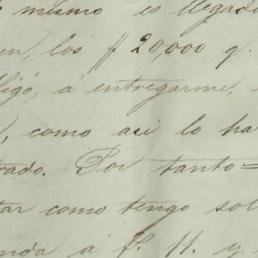 mismo es llegado
en, los $ 20,000 q.
ligó, a entregarme,
, como asi lo ha
rado. Por tanto=
tar como tengo sol
enda á f. 11. y